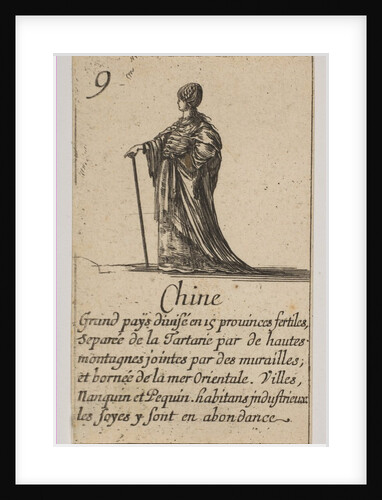 9
Chine
Grand païs diuisé en 15 prouinces fertiles,
Separée de la Tartarie par de hautes
montagnes jointes par des murailles;
et bornée de la mer Orientale. Villes,
Nanquin et Pequin. habitans jndustrieux.
les soyes y sont en abondance